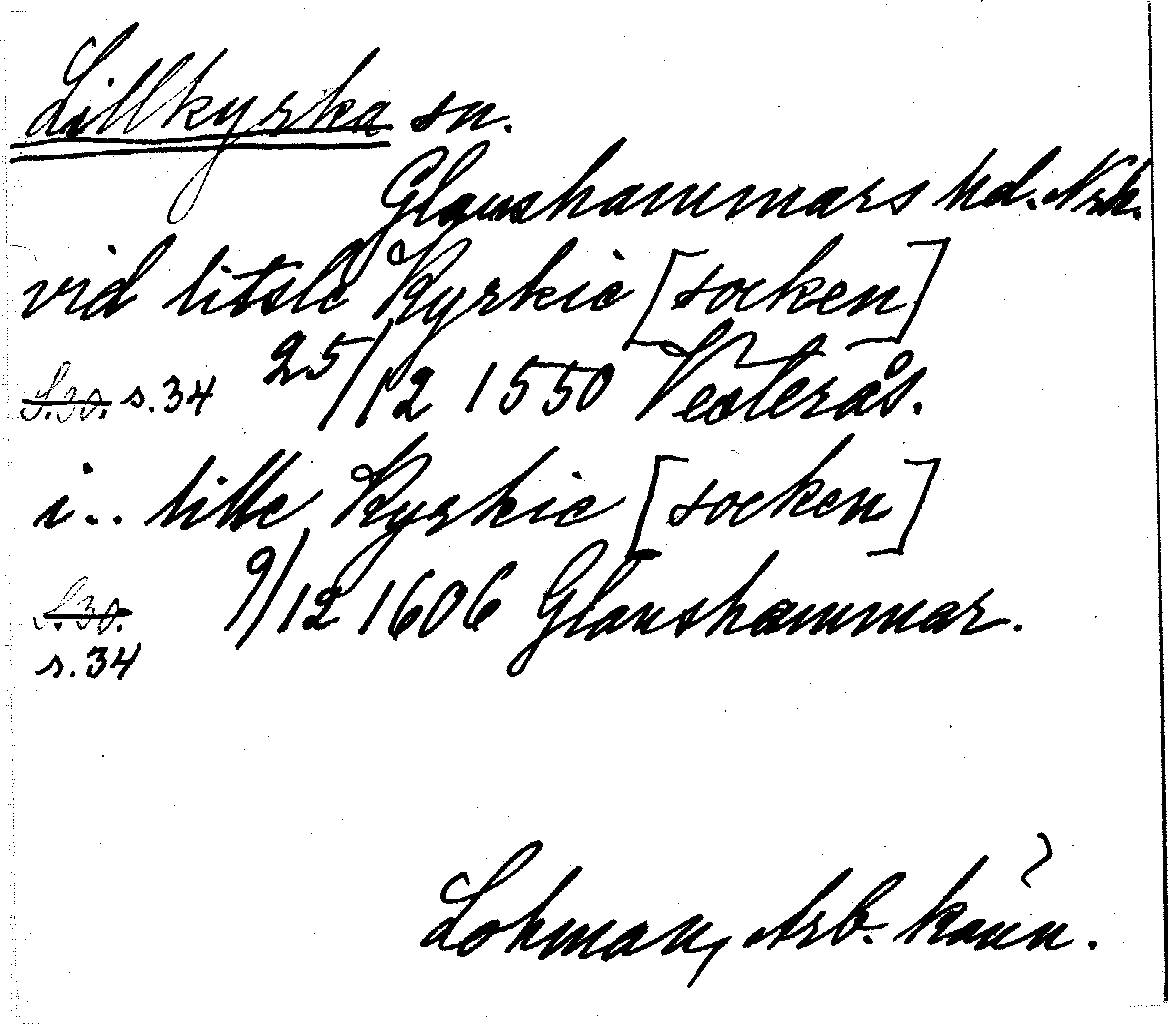 Lillkyrka sn.
Glanshammars hd. Nrk.
vid litslé Kyrkie [socken]
S.30. s.34 25/12 1550 Vesterås.
i.. lille Kyrkie [socken]
S.30. 9/12 1606 Glanshammar.
s.34
Lohman, Arb. känn.